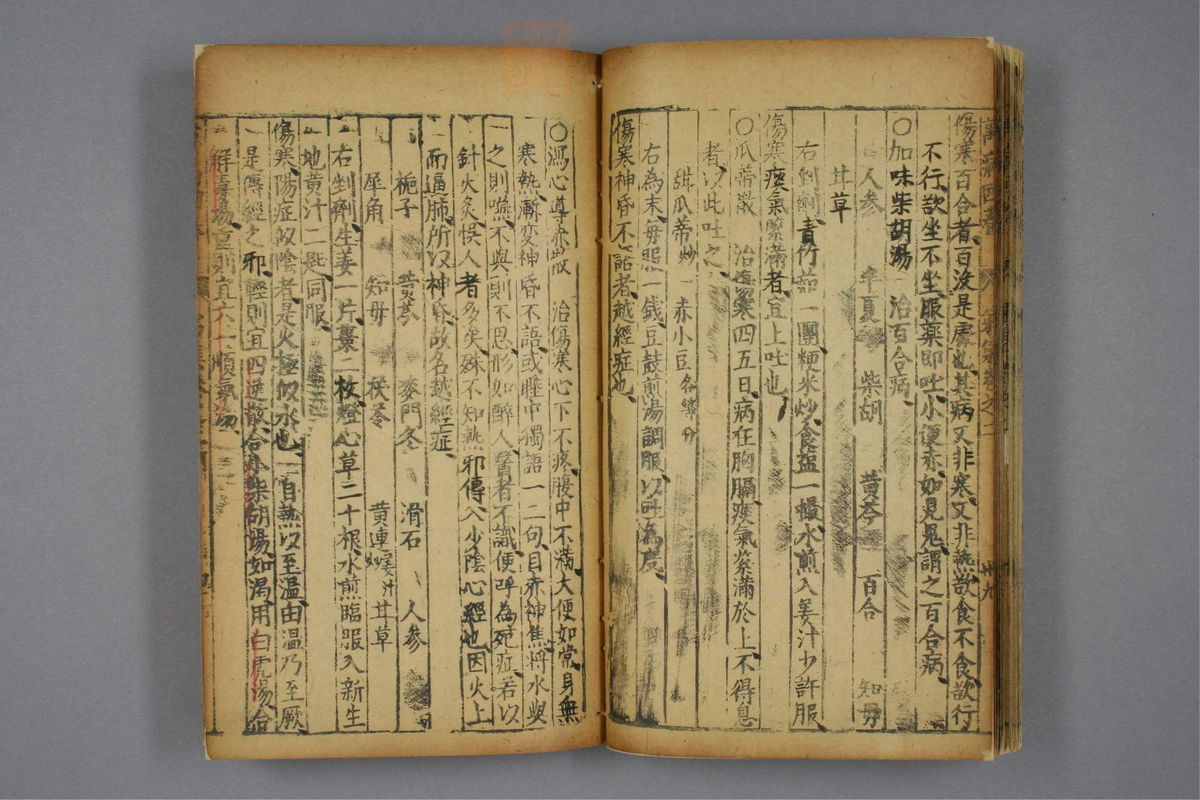 傷寒百合者百沒是慮也其病又非寒又非熱欲食不食欲行
不行欲坐不坐服藥即吐小便赤如見鬼謂之百合病
〇加味柴胡湯　治百合病
人參　半夏　柴胡　黃芩　百合　知母
甘草
右剉劑青竹茹一團粳米炒食盐一撮水煎入姜汁少許服
傷寒痰氣緊滿者宜上吐也
〇瓜蒂散　治傷寒四五日病在胸膈痰氣緊滿於上不得息
者以此吐之
甜瓜蒂炒　赤小豆各等分
右為末每服一錢豆鼓煎湯調服以吐為度
傷寒神昏不語者越經症也
〇瀉心導赤散　治傷寒心下不疼腹中不滿大便如常身無
寒熱漸變神昏不語或睡中獨語一二句目赤神焦將水與
之則嚥不與則不思形如醉人醫者不識便呼為死症若以
針火灸悞人者多矣殊不知熱邪傳入少陰心經也因火上
而逼肺所以神昏故名越經症
梔子　黃芩　麥門冬　滑石　人參
犀角　知母　茯苓　黃連姜汁炒　甘草
右剉劑生姜一片棗二枚燈心草二十根水煎臨服入新生
地黃汁二匙同服
傷寒陽症似陰者是火極似水也　自熱以至溫由溫乃至厥
是傳經之邪輕則宜四逆散合小柴胡湯如渴用白虎湯合
解毒湯重則宜六一順氣湯